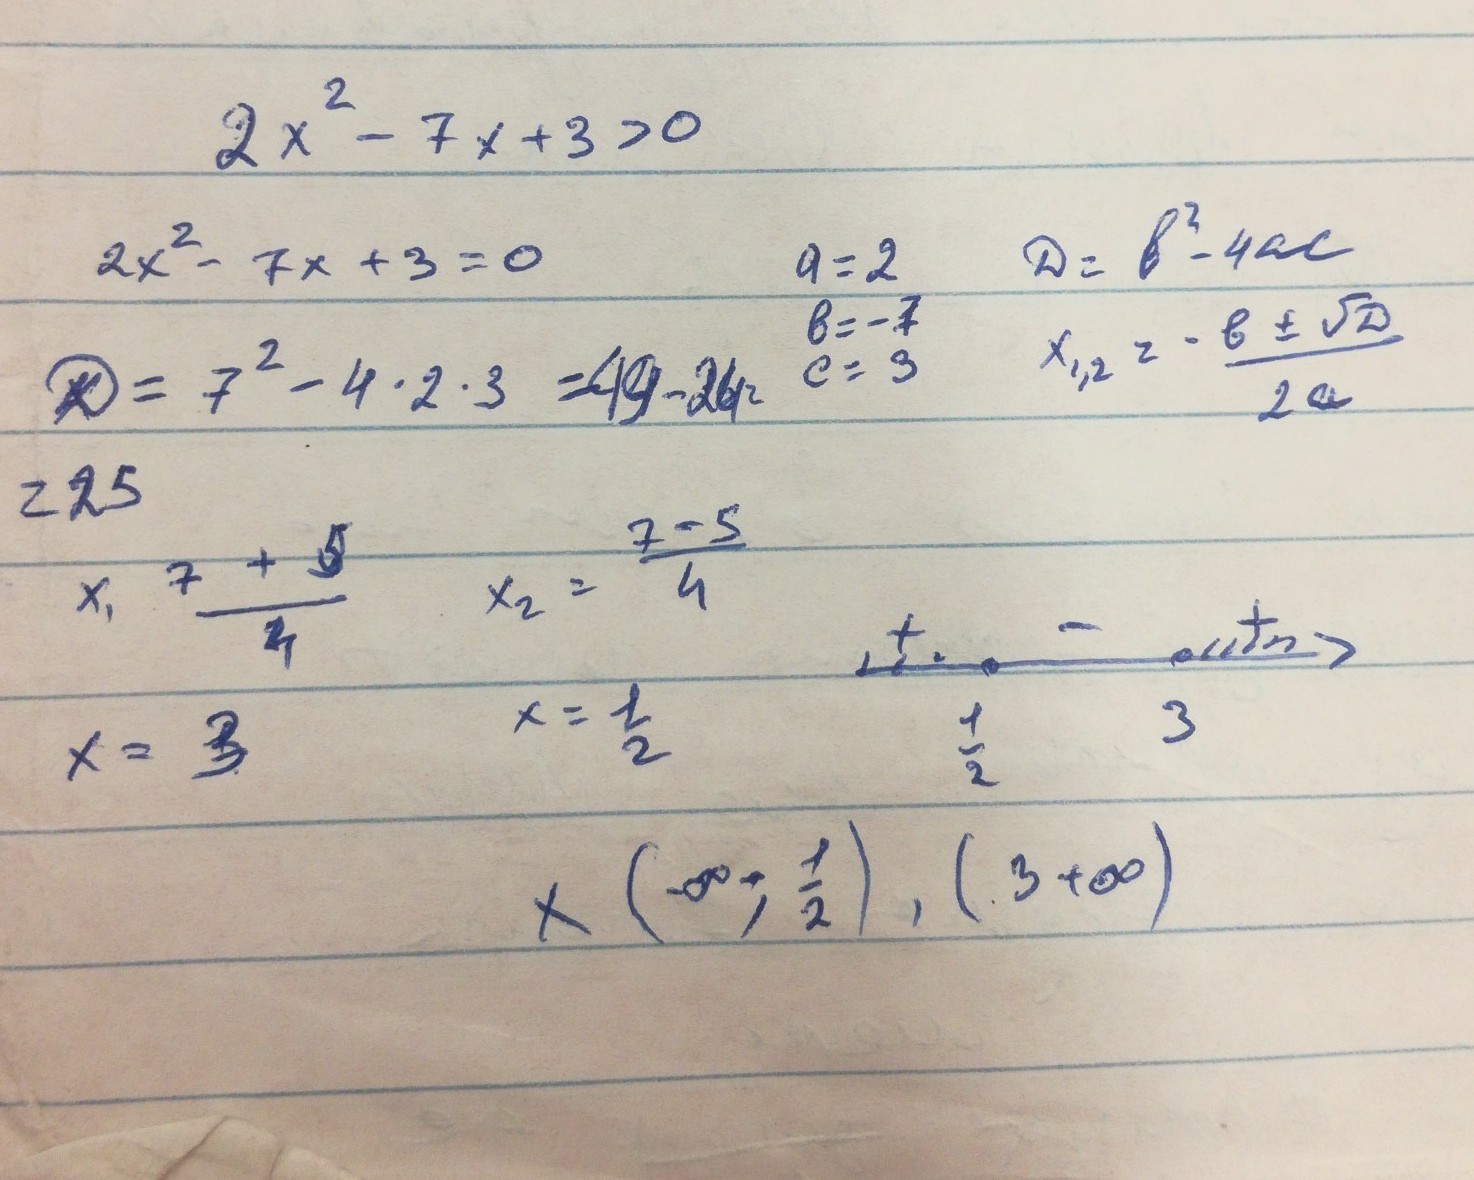 2x² - 7x + 3 > 0
2x² - 7x + 3 = 0
a = 2
b = -7
c = 3
D = b² - 4ac
x₁,₂ = -b ± √D / 2a
D = 7² - 4 · 2 · 3 = 49 - 24 =
= 25
x₁ 7 + 5 / 4
x₂ = 7 - 5 / 4
x = 3
x = 1/2
+ - +
1/2 3
x (-∞; 1/2), (3 +∞)